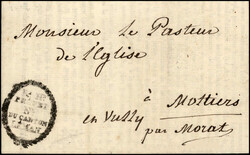 Monsieur Le Pasteur
de l'Eglise
à Mottiers
en Vully
par Morat
DU CANTON